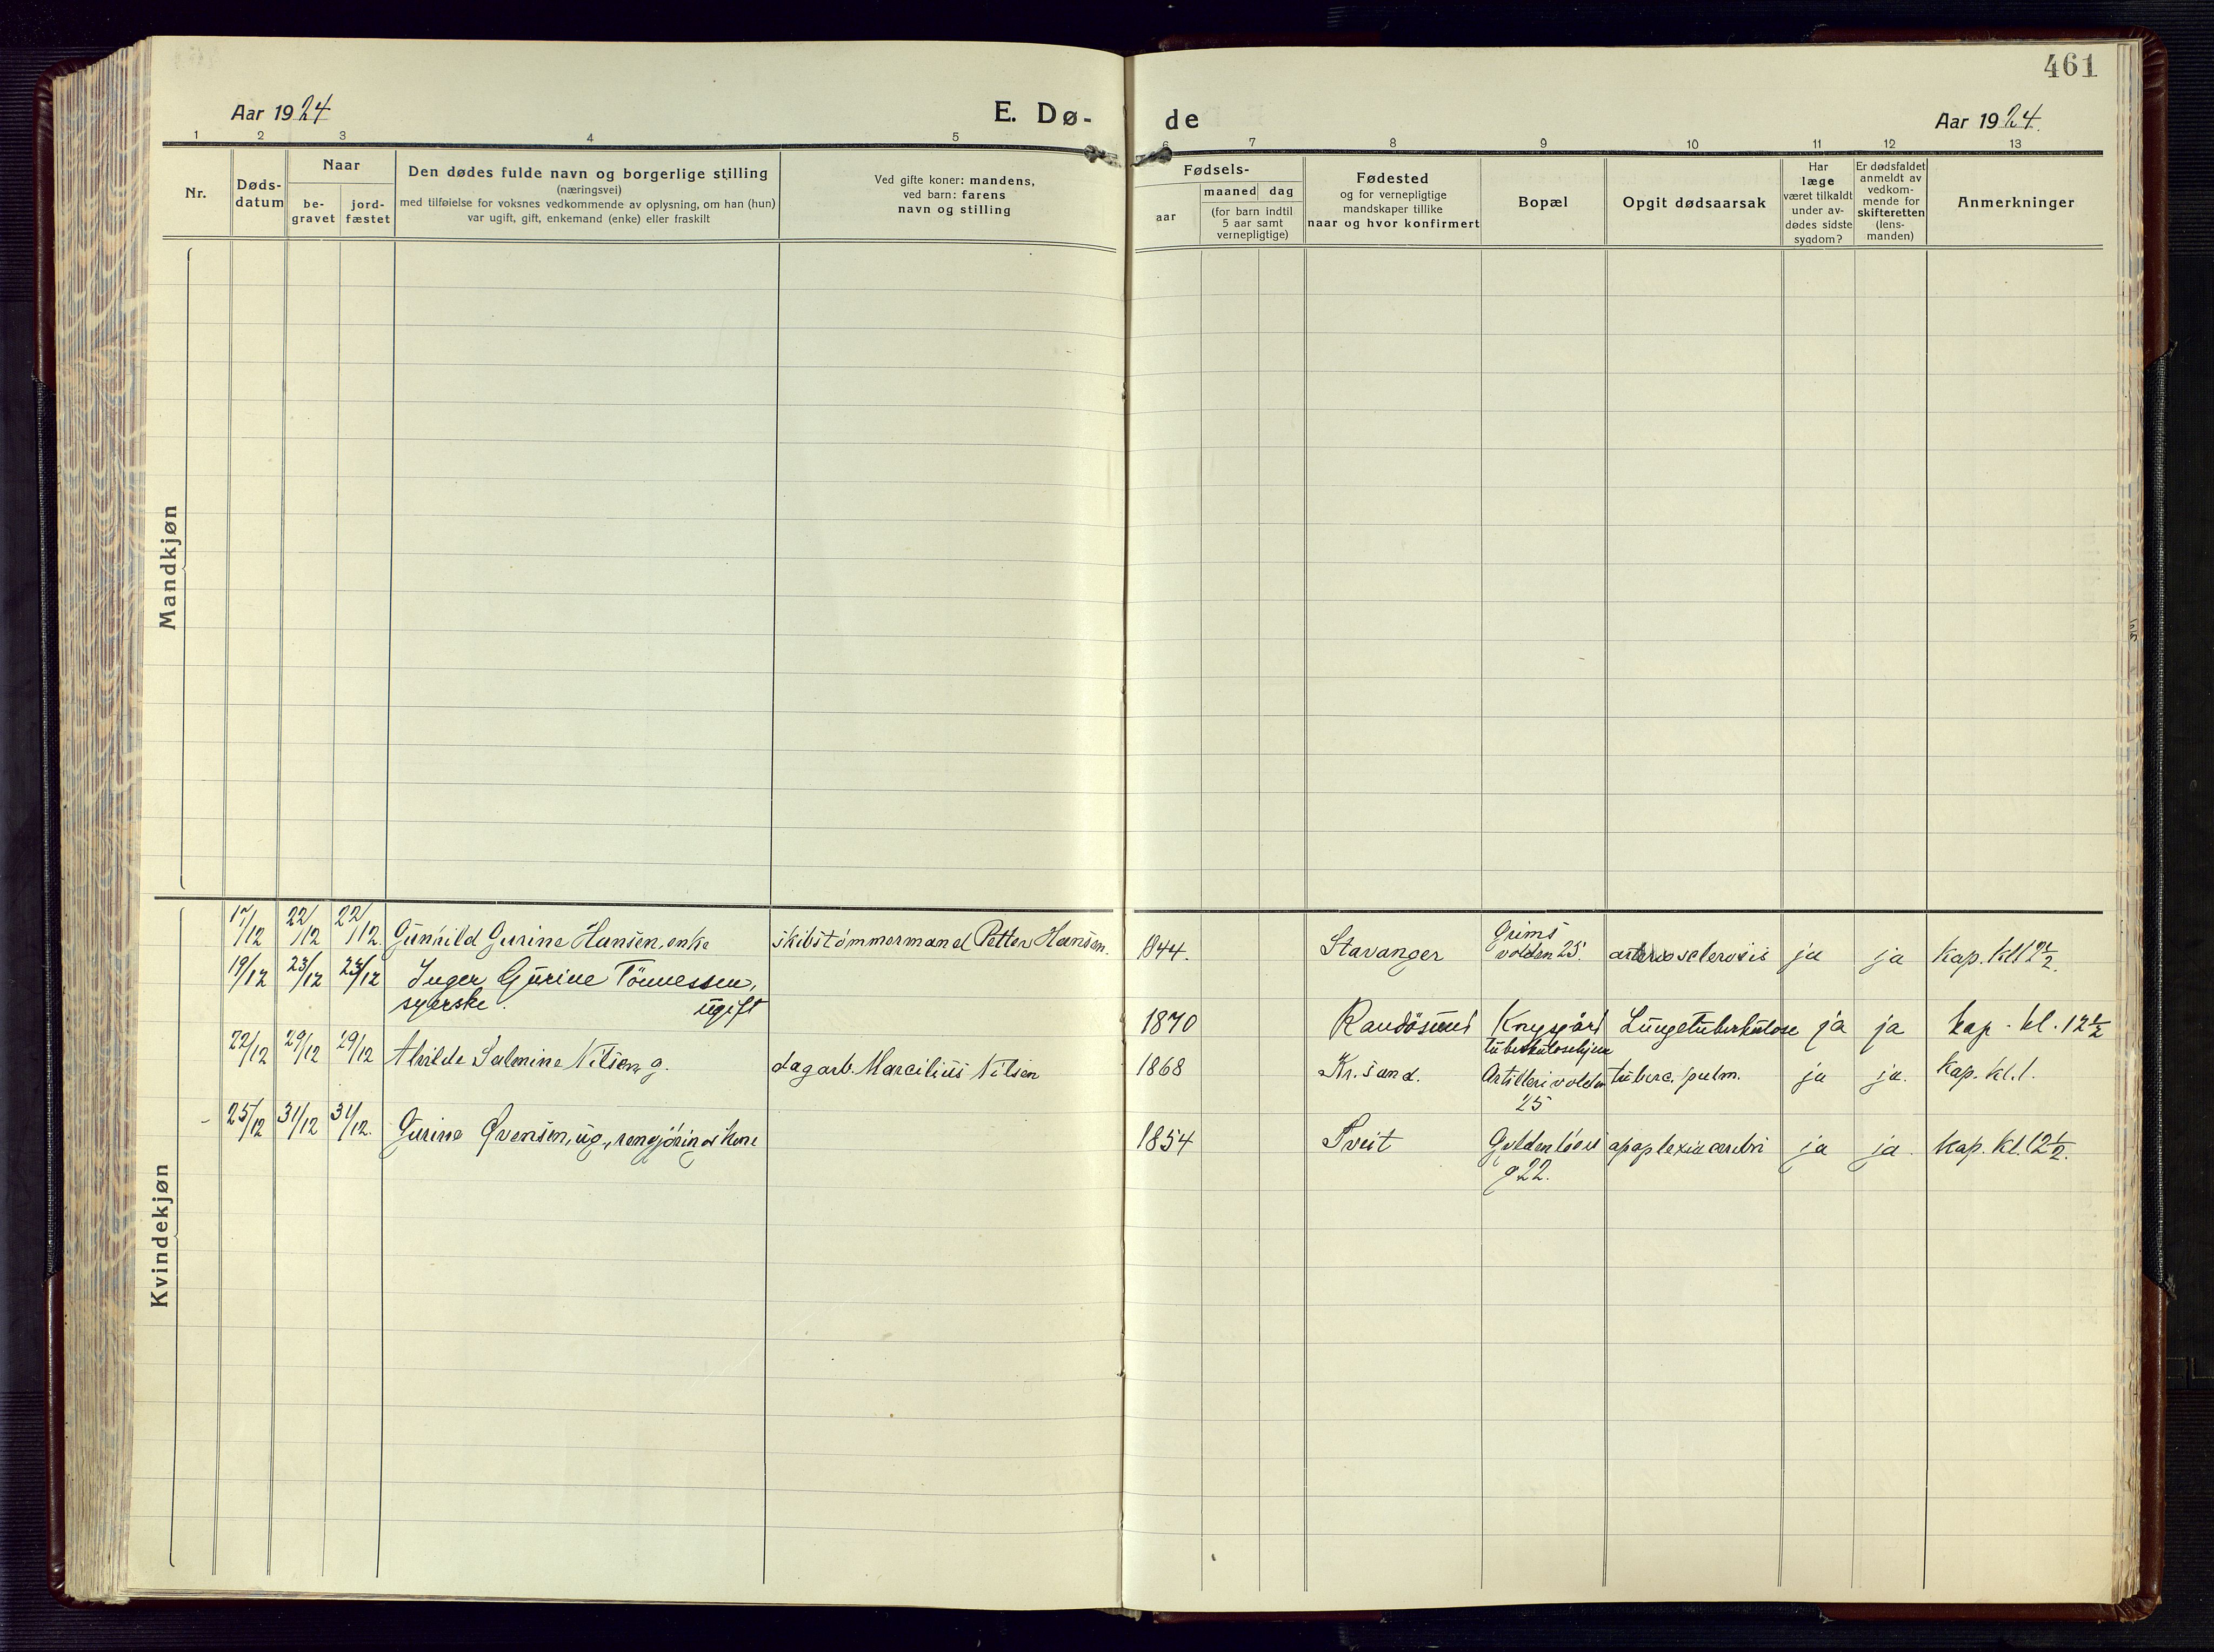 461
Aar 1924
E. Dø-
de
Aar 1924.
1 2 3 4 5 6 7 8 9 10 11 12 13
Nr.
Døds-
datum
Naar
be-
gravet
jord-
fæstet
Den dødes fulde navn og borgerlige stilling
(næringsvei)
med tilføielse for voksnes vedkommende av oplysning, om han (hun)
var ugift, gift, enkemand (enke) eller fraskilt
Ved gifte koner: mandens,
ved barn: farens
navn og stilling
Fødsels-
aar
maaned dag
(for barn indtil
5 aar samt
vernepligtige)
Fødested
og for vernepligtige
mandskaper tillike
naar og hvor konfirmert
Bopæl
Opgit dødsaarsak
Har
læge
været tilkaldt
under av-
dødes sidste
sygdom?
Er dødsfaldet
anmeldt av
vedkom-
mende for
skifteretten
(lens-
manden)
Anmerkninger
Mandkjøn
Kvindekjøn
17/12 22/12 22/12 Gunhild Gurine Hansen, enke skibstømmermand Petter Hansen. 1844. Stavanger Grims
volden 25. arteriosclerosis ja ja Kap. Kl 12 1/2.
19/12 23/12 23/12 Inger Gurine Tönnessen,
syerske. ugift 1870 Randösund Kongsgård
tuberkulosehjem Lungetuberkulose ja ja kap. kl. 12 1/2
22/12 29/12 29/12 Alvilde Salmine Nilsen g. dagarb. Marcilius Nilsen 1868 Kr.sand. Artillerivolden
25 tuberc. pulm. ja ja. Kap. kl. 1.
- 25/12 31/12 31/12. Gurine Øvensen, ug., rengjöringskone 1854 Tveit Gyldenløves
g 22. apoplexia cerebri ja ja. Kap. Kl. 12 1/2.